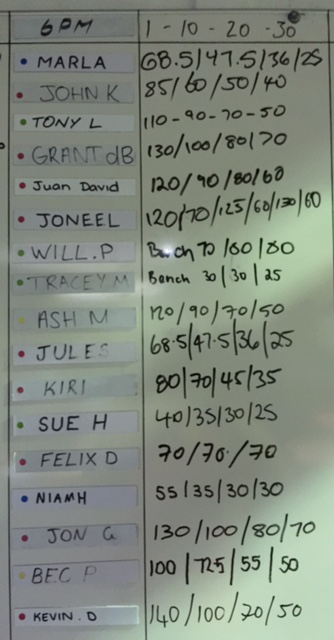 6PM 1 - 10 - 20 - 30
MARLA 68.5/47.5/36/25
JOHN K 85/60/50/40
TONY L 110-90-70-50
GRANT dB 130/100/80/70
Juan David 120/90/80/60
JONEEL 120/70/125/60/130/60
WILL.P Bench 70/60/80
TRACEY M Bench 30/30/25
ASH M 120/90/70/50
JULES 68.5/47.5/36/25
KIRI 80/70/45/35
SUE H 40/35/30/25
FELIX D 70/70/70
NIAMH 55/35/30/30
JON G 130/100/80/70
BEC P 100/72.5/55/50
KEVIN.D 140/100/70/50